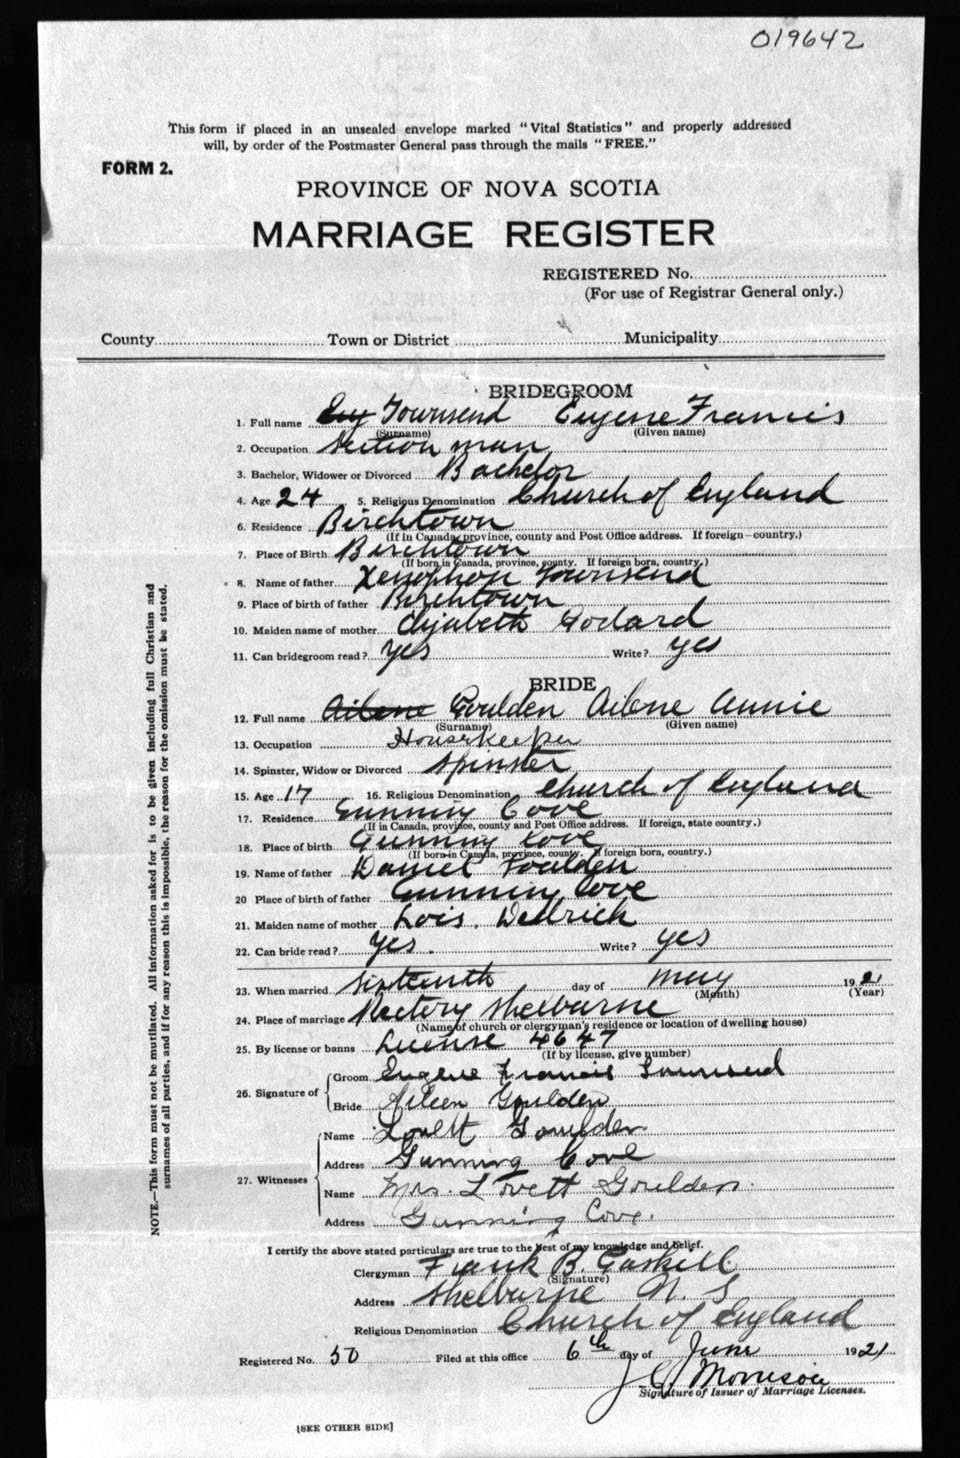 019642
This form if placed in an unsealed envelope marked "Vital Statistics" and properly addressed
will, by order of the Postmaster General pass through the mails "FREE."
FORM 2.
PROVINCE OF NOVA SCOTIA
MARRIAGE REGISTER
REGISTERED No.
(For use of Registrar General only.)
County Town or District Municipality
BRIDEGROOM
1. Full name Eug Townsend Eugene Francis
(Surname) (Given name)
2. Occupation Section man
3. Bachelor, Widower or Divorced Bachelor
4. Age 24 5. Religious Denomination Church of England
6. Residence Birchtown
(If in Canada, province, county and Post Office address. If foreign—country.)
7. Place of Birth Birchtown
(If born in Canada, province, county. If foreign born, country.)
8. Name of father Xenophon Townsend
9. Place of birth of father Birchtown
10. Maiden name of mother Elizabeth Godard
11. Can bridegroom read? yes Write? yes
BRIDE
12. Full name Ailene Goulden Ailene Annie
(Surname) (Given name)
13. Occupation Housekeeper
14. Spinster, Widow or Divorced Spinster
15. Age 17 16. Religious Denomination Church of England
17. Residence Gunning Cove
(If in Canada, province, county and Post Office address. If foreign, state country.)
18. Place of birth Gunning Cove
(If born in Canada, province, county. If foreign born, country.)
19. Name of father Daniel Goulden
20 Place of birth of father Gunning Cove
21. Maiden name of mother Lois. Dedrick
22. Can bride read? yes. Write? yes
23. When married sixteenth day of may 1921
(Month) (Year)
24. Place of marriage Rectory Shelburne
(Name of church or clergyman's residence or location of dwelling house)
25. By license or banns License 4647
(If by license, give number)
26. Signature of Groom Eugene Francis Townsend
Bride Aileen Goulden
27. Witnesses Name Lovett Goulden
Address Gunning Cove
Name Mrs. Lovett Goulden.
Address Gunning Cove.
I certify the above stated particulars are true to the best of my knowledge and belief.
Clergyman Frank B. Gaskell
(Signature)
Address Shelburne N. S
Religious Denomination Church of England
Registered No. 50 Filed at this office 6th day of June 1921
J C Morrison
Signature of Issuer of Marriage Licenses.
[SEE OTHER SIDE]
NOTE.—This form must not be mutilated. All information asked for is to be given including full Christian and
surnames of all parties, and if for any reason this is impossible, the reason for the omission must be stated.